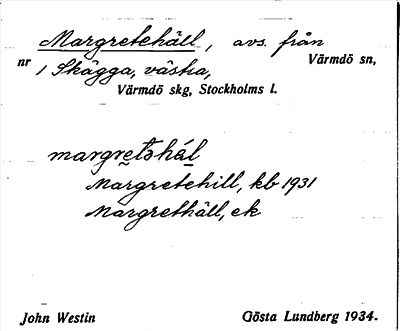 Margretehäll, avs. från
nr 1 Skägga, västra, Värmdö sn,
Värmdö skg, Stockholms l.
margretshál
Margretehill, kb 1931
Margrethäll, ek
John Westin Gösta Lundberg 1934.